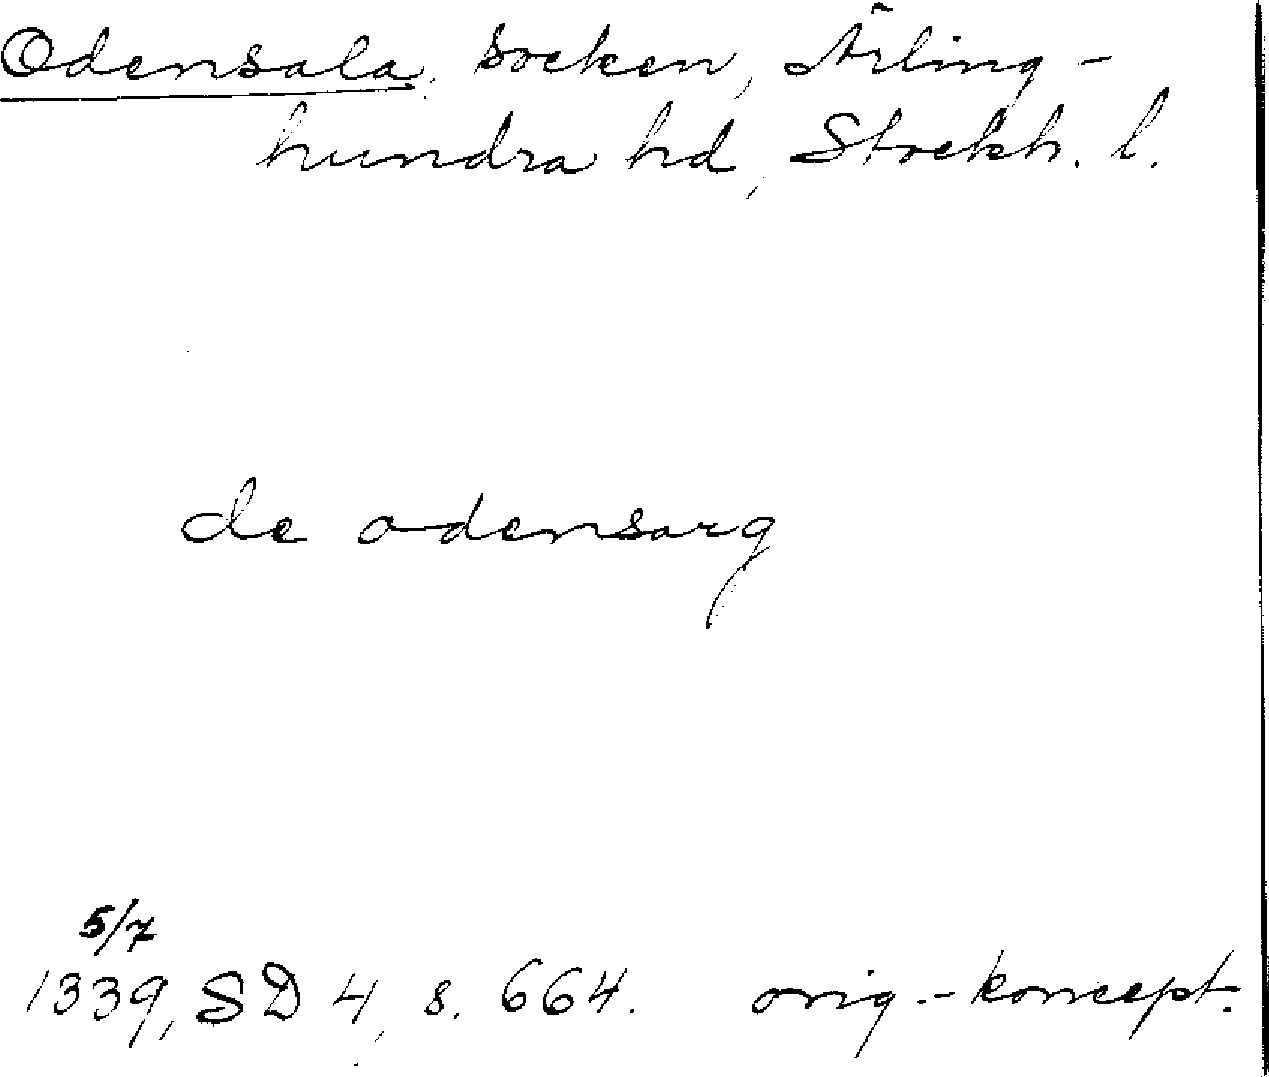 Odensala, socken, Ärling-
hundra hd, Stockh. l.
de odensarg
5/7
1339, SD 4, s. 664. orig.-koncept.